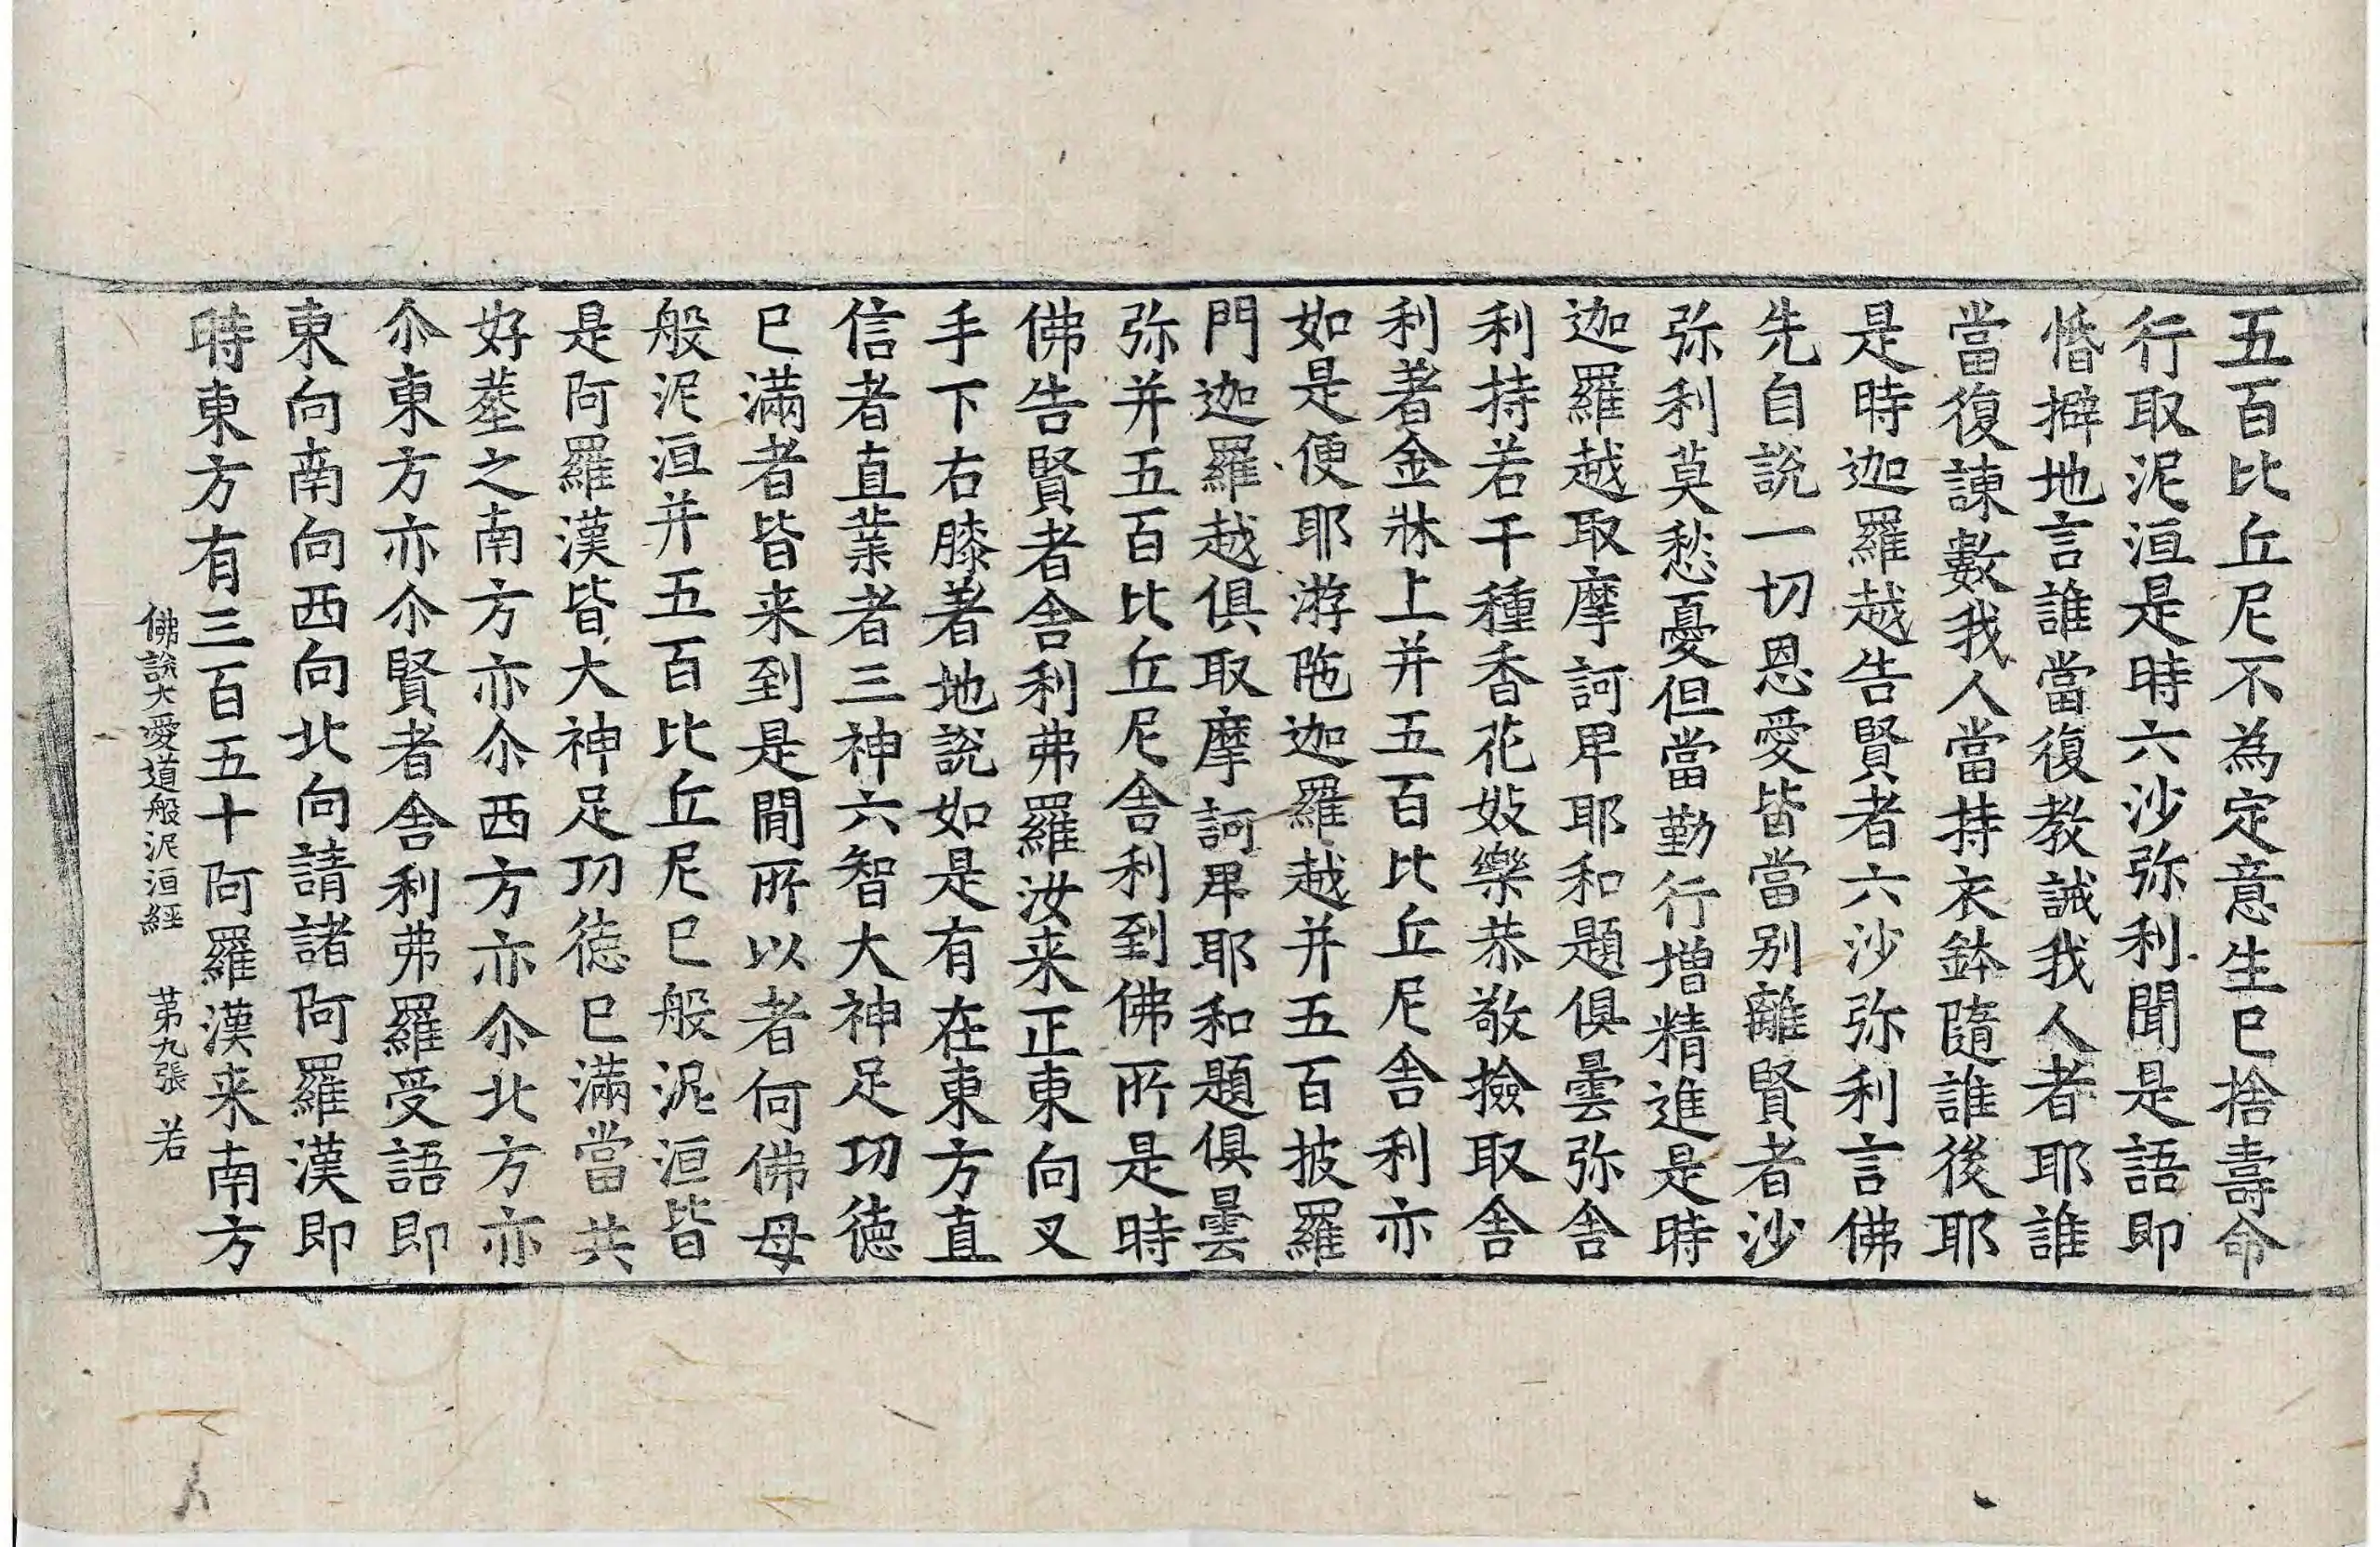 五百比丘尼不為定意生已捨壽命
行取泥洹是時六沙弥利聞是語即
惛擗地言誰當復教誡我人者耶誰
當復諫數我人當持衣鉢隨誰後耶
是時迦羅越告賢者六沙弥利言佛
先自說一切恩愛皆當別離賢者沙
弥利莫愁憂但當勤行增精進是時
迦羅越取摩訶卑耶和題俱曇弥舍
利持若干種香花妓樂恭敬撿取舍
利著金牀上并五百比丘尼舍利亦
如是便耶游陁迦羅越并五百披羅
門迦羅越俱取摩訶卑耶和題俱曇
弥并五百比丘尼舍利到佛所是時
佛告賢者舍利弗羅汝来正東向叉
手下右膝著地說如是有在東方直
信者直業者三神六智大神足功德
已滿者皆来到是間所以者何佛母
般泥洹并五百比丘尼已般泥洹皆
是阿羅漢皆大神足功德已滿當共
好葬之南方亦尒西方亦尒北方亦
尒東方亦尒賢者舍利弗羅受語即
東向南向西向北向請諸阿羅漢即
時東方有三百五十阿羅漢来南方
佛說大愛道般泥洹經 苐九張 若